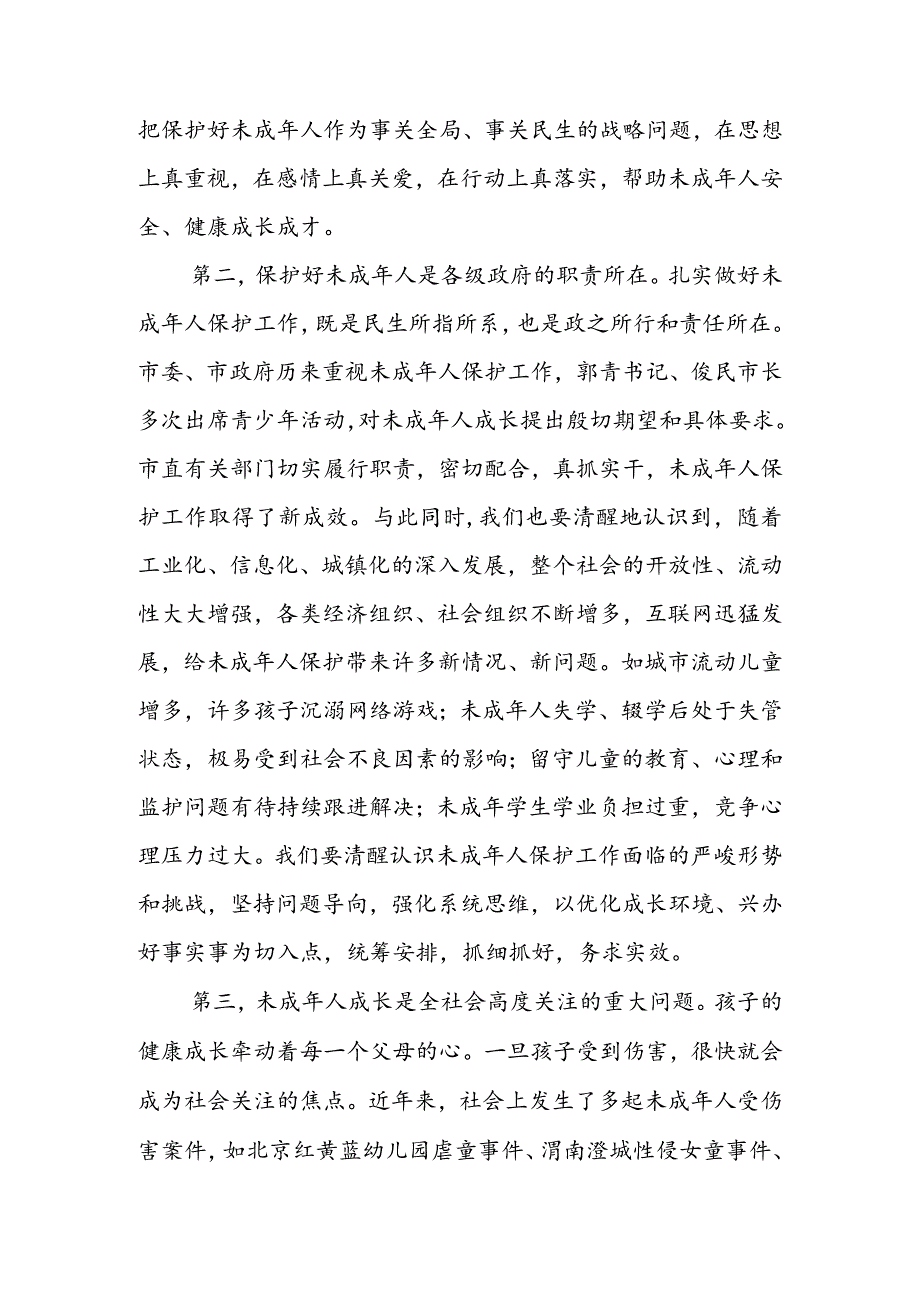 把保护好未成年人作为事关全局、事关民生的战略问题，在思想
上真重视，在感情上真关爱，在行动上真落实，帮助未成年人安
全、健康成长成才。
第二，保护好未成年人是各级政府的职责所在。扎实做好未
成年人保护工作，既是民生所指所系，也是政之所行和责任所在。
市委、市政府历来重视未成年人保护工作，郭青书记、俊民市长
多次出席青少年活动，对未成年人成长提出殷切期望和具体要求。
市直有关部门切实履行职责，密切配合，真抓实干，未成年人保
护工作取得了新成效。与此同时，我们也要清醒地认识到，随着
工业化、信息化、城镇化的深入发展，整个社会的开放性、流动
性大大增强，各类经济组织、社会组织不断增多，互联网迅猛发
展，给未成年人保护带来许多新情况、新问题。如城市流动儿童
增多，许多孩子沉溺网络游戏；未成年人失学、辍学后处于失管
状态，极易受到社会不良因素的影响；留守儿童的教育、心理和
监护问题有待持续跟进解决；未成年学生学业负担过重，竞争心
理压力过大。我们要清醒认识未成年人保护工作面临的严峻形势
和挑战，坚持问题导向，强化系统思维，以优化成长环境、兴办
好事实事为切入点，统筹安排，抓细抓好，务求实效。
第三，未成年人成长是全社会高度关注的重大问题。孩子的
健康成长牵动着每一个父母的心。一旦孩子受到伤害，很快就会
成为社会关注的焦点。近年来，社会上发生了多起未成年人受伤
害案件，如北京红黄蓝幼儿园虐童事件、渭南澄城性侵女童事件、